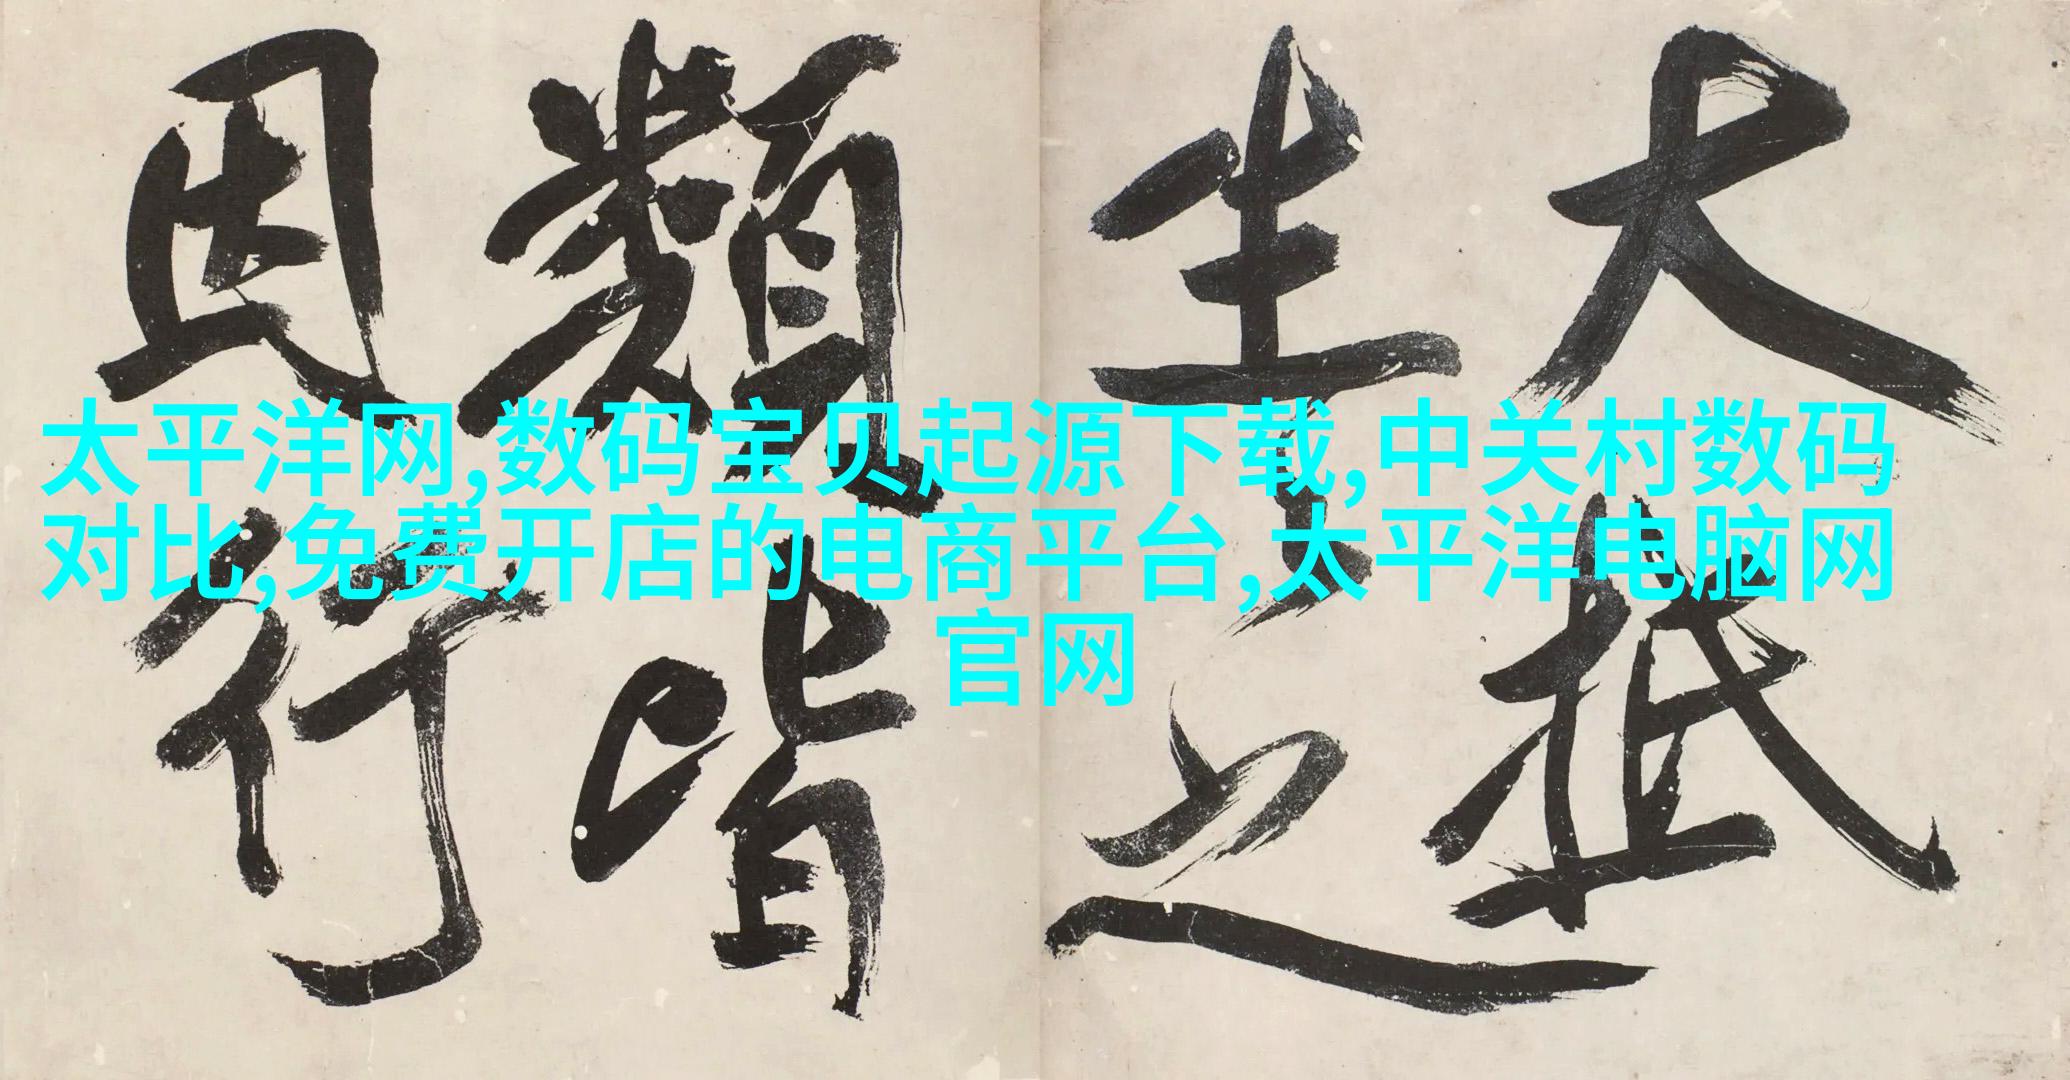 大抵
生之
類皆
因行
太平洋网,数码宝贝起源下载,中关村数码
对比,免费开店的电商平台,太平洋电脑网
官网